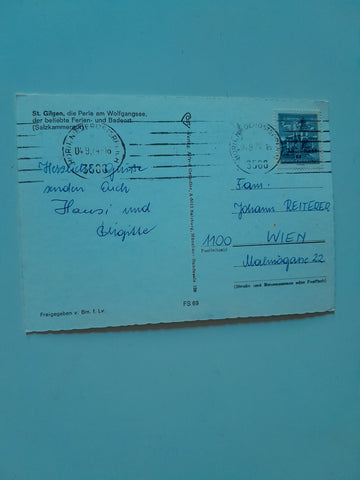 St. Gilgen, die Perle am Wolfgangsee,
der beliebte Ferien- und Badeort.
(Salzkammergut)
3500
Herzliche Grüße
senden Euch
Hansi und
Brigitte
Freigegeben v. Bm. f. Lv.
FS 69
3500
Fam.
Johann REITERER
1100 WIEN
(Postleitzahl)
Malmögasse 22
(Straße und Hausnummer oder Postfach)